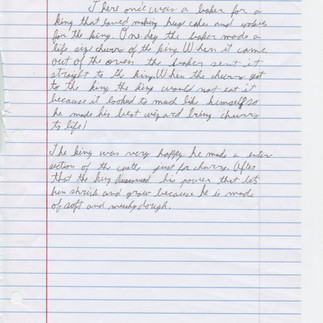 There once was a baker for a
king that loved making huge cakes and
for the king. One day the baker made a
life size churro of the king. When it came
out of the oven the baker sent it
straight to the king. When the churro got
to the king the king would not eat it
because it looked to much like himself so
he made his best wizard bring churro
to life!
The king was very happy he made a
section of the castle just for churro. After
that the king his power that lets
him shrink and grow because he is made
of soft and dough.